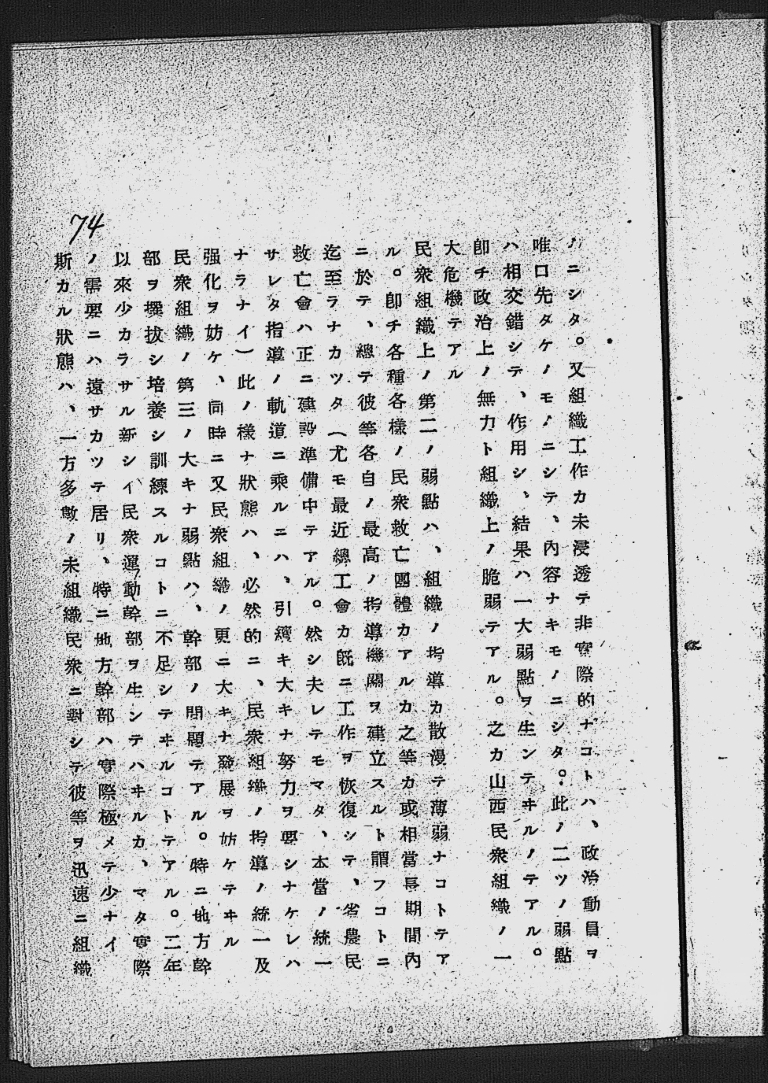 ノニシタ。又組織工作カ未浸透テ非實際的ナコトハ、政治動員ヲ
唯口先タケノモノニシテ、內容ナキモノニシタ。此ノ二ツノ弱點
ハ相交錯シテ、作用シ、結果ハ一大弱點ヲ生ンテヰルノテアル。
卽チ政治上ノ無力ト組織上ノ脆弱テアル。之カ山西民衆組織ノ一
大危機テアル
民衆組織上ノ第二ノ弱點ハ、組織ノ指導カ散漫テ薄弱ナコトテア
ル。卽チ各種各樣ノ民衆救亡團體カアルカ之等カ或相當長期間內
ニ於テ、總テ彼等各自ノ最高ノ指導機關ヲ建立スルト謂フコトニ
迄至ラナカツタ（尤モ最近總工會カ旣ニ工作ヲ恢復シテ、省農民
救亡會ハ正ニ建設準備中テアル。然シ夫レテモマタ、本當ノ統一
サレタ指導ノ軌道ニ乘ルニハ、引續キ大キナ努力ヲ要シナケレハ
ナラナイ）此ノ樣ナ狀態ハ、必然的ニ、民衆組織ノ指導ノ統一及
强化ヲ妨ケ、同時ニ又民衆組織ノ更ニ大キナ發展ヲ妨ケテヰル
民衆組織ノ第三ノ大キナ弱點ハ、幹部ノ問題テアル。特ニ地方幹
部ヲ擇拔シ培養シ訓練スルコトニ不足シテヰルコトテアル。二年
以來少カラサル新シイ民衆運動幹部ヲ生ンテハヰルカ、マタ實際
ノ需要ニハ遠サカツテ居リ、特ニ地方幹部ハ實際極メテ少ナイ
斯カル狀態ハ、一方多數ノ未組織民衆ニ對シテ彼等ヲ迅速ニ組織
74